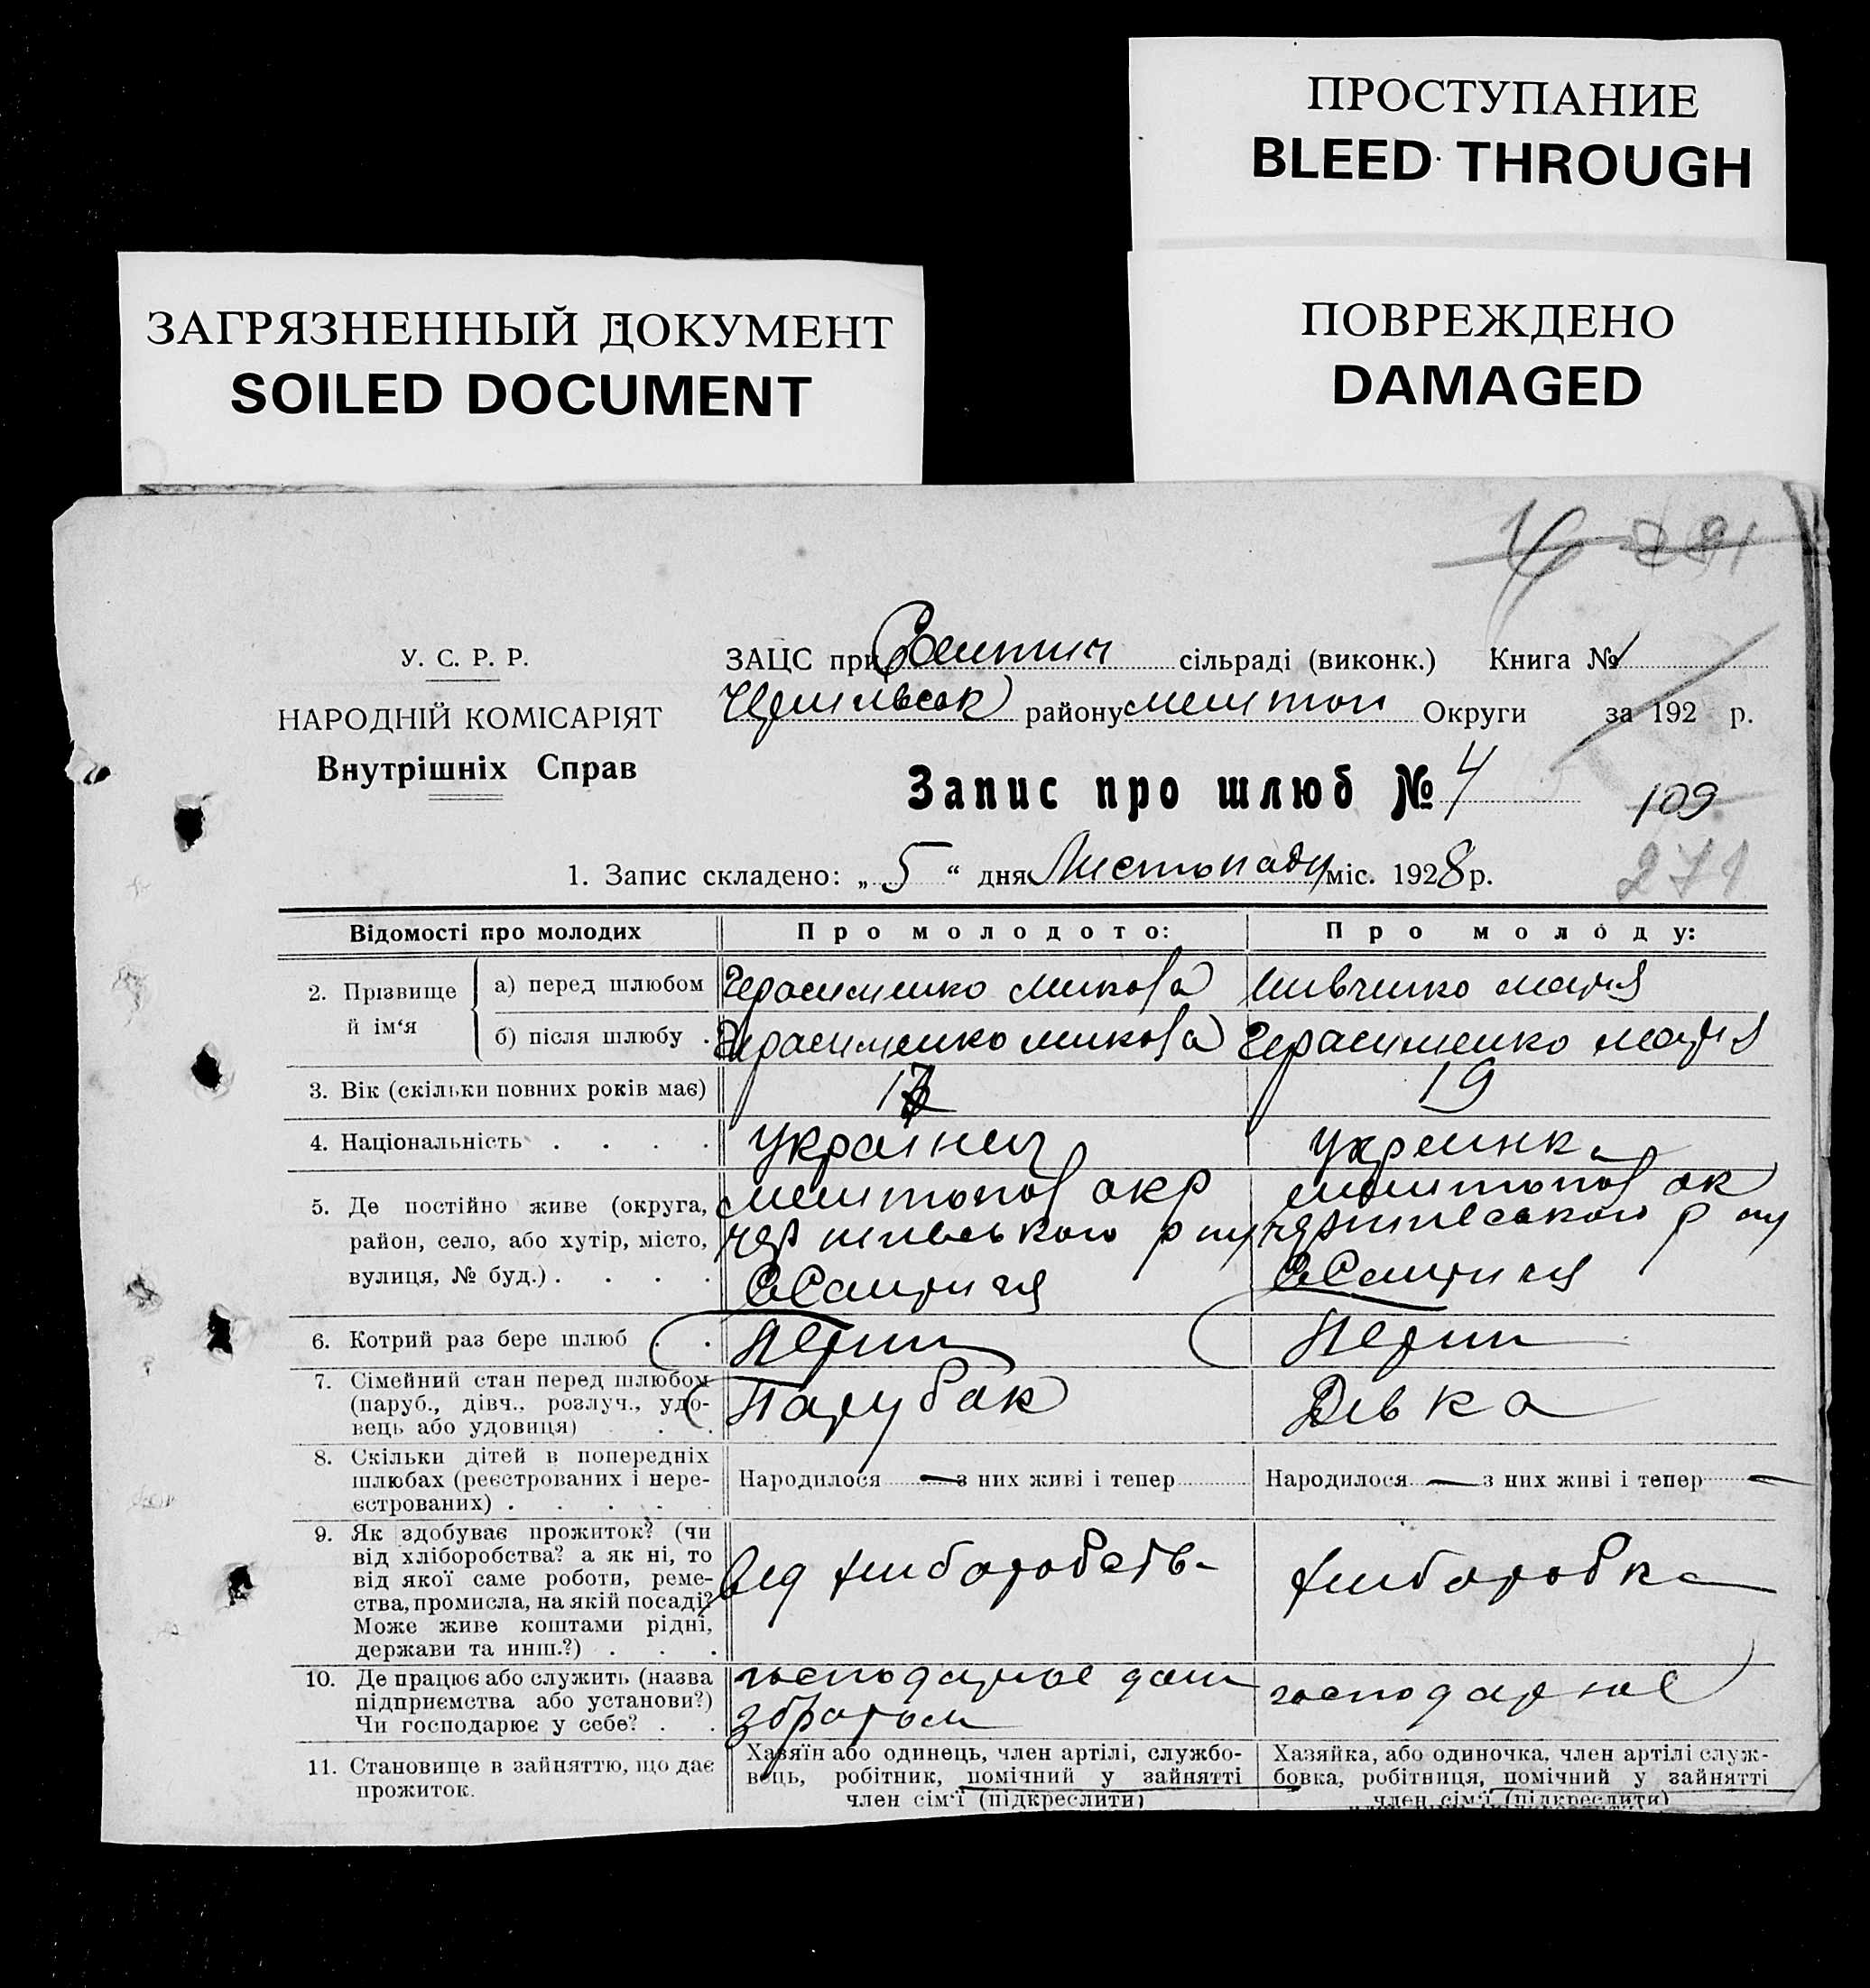 ПРОСТУПАНИЕ
BLEED THROUGH
ЗАГРЯЗНЕННЫЙ ДОКУМЕНТ
SOILED DOCUMENT
ПОВРЕЖДЕНО
DAMAGED
У. С. Р. Р.
НАРОДНІЙ КОМІСАРІЯТ
Внутрішніх Справ
ЗАЦС при сільраді (виконк.) Книга № 1
району Округи за 192 р.
Запис про шлюб № 4
109
271
1. Запис складено: „ 5 “ дня Листопаду міс. 1928 р.
Відомості про молодих
Про молодого:
Про молоду:
2. Прізвище й ім‘я
а) перед шлюбом
Герасименко Микола
Марія
б) після шлюбу .
Герасименко Микола
Герасименко Марія
3. Вік (скільки повних років має)
19
4. Національність . . . .
Українец
Украинка
5. Де постійно живе (округа,
район, село, або хутір, місто,
вулиця, № буд.) . . . .
окр
р ну
ок
р ну
6. Котрий раз бере шлюб . .
Перш
Перш
7. Сімейний стан перед шлюбом
(паруб., дівч., розлуч., удо-
вець або удовиця) . . .
Парубок
Дівка
8. Скільки дітей в попередніх
шлюбах (реєстрованих і нере-
єстрованих) . . . . .
Народилося — з них живі і тепер
Народилося — з них живі і тепер —
9. Як здобуває прожиток? (чи
від хліборобства? а як ні, то
від якої саме роботи, реме-
ства, промисла, на якій посаді?
Може живе коштами рідні,
держави та инш.?) . . .
Від хлиборобств
хлиборобка
10. Де працює або служить (назва
підприємства або установи?)
Чи господарює у себе? . .
господарює
з братом
господарює
11. Становище в зайняттю, що дає
прожиток.
Хазяїн або одинець, член артілі, службо-
вець, робітник, помічний у зайнятті
член сім‘ї (підкреслити)
Хазяйка, або одиночка, член артілі служ-
бовка, робітниця, помічний у зайнятті
член сім‘ї (підкреслити)